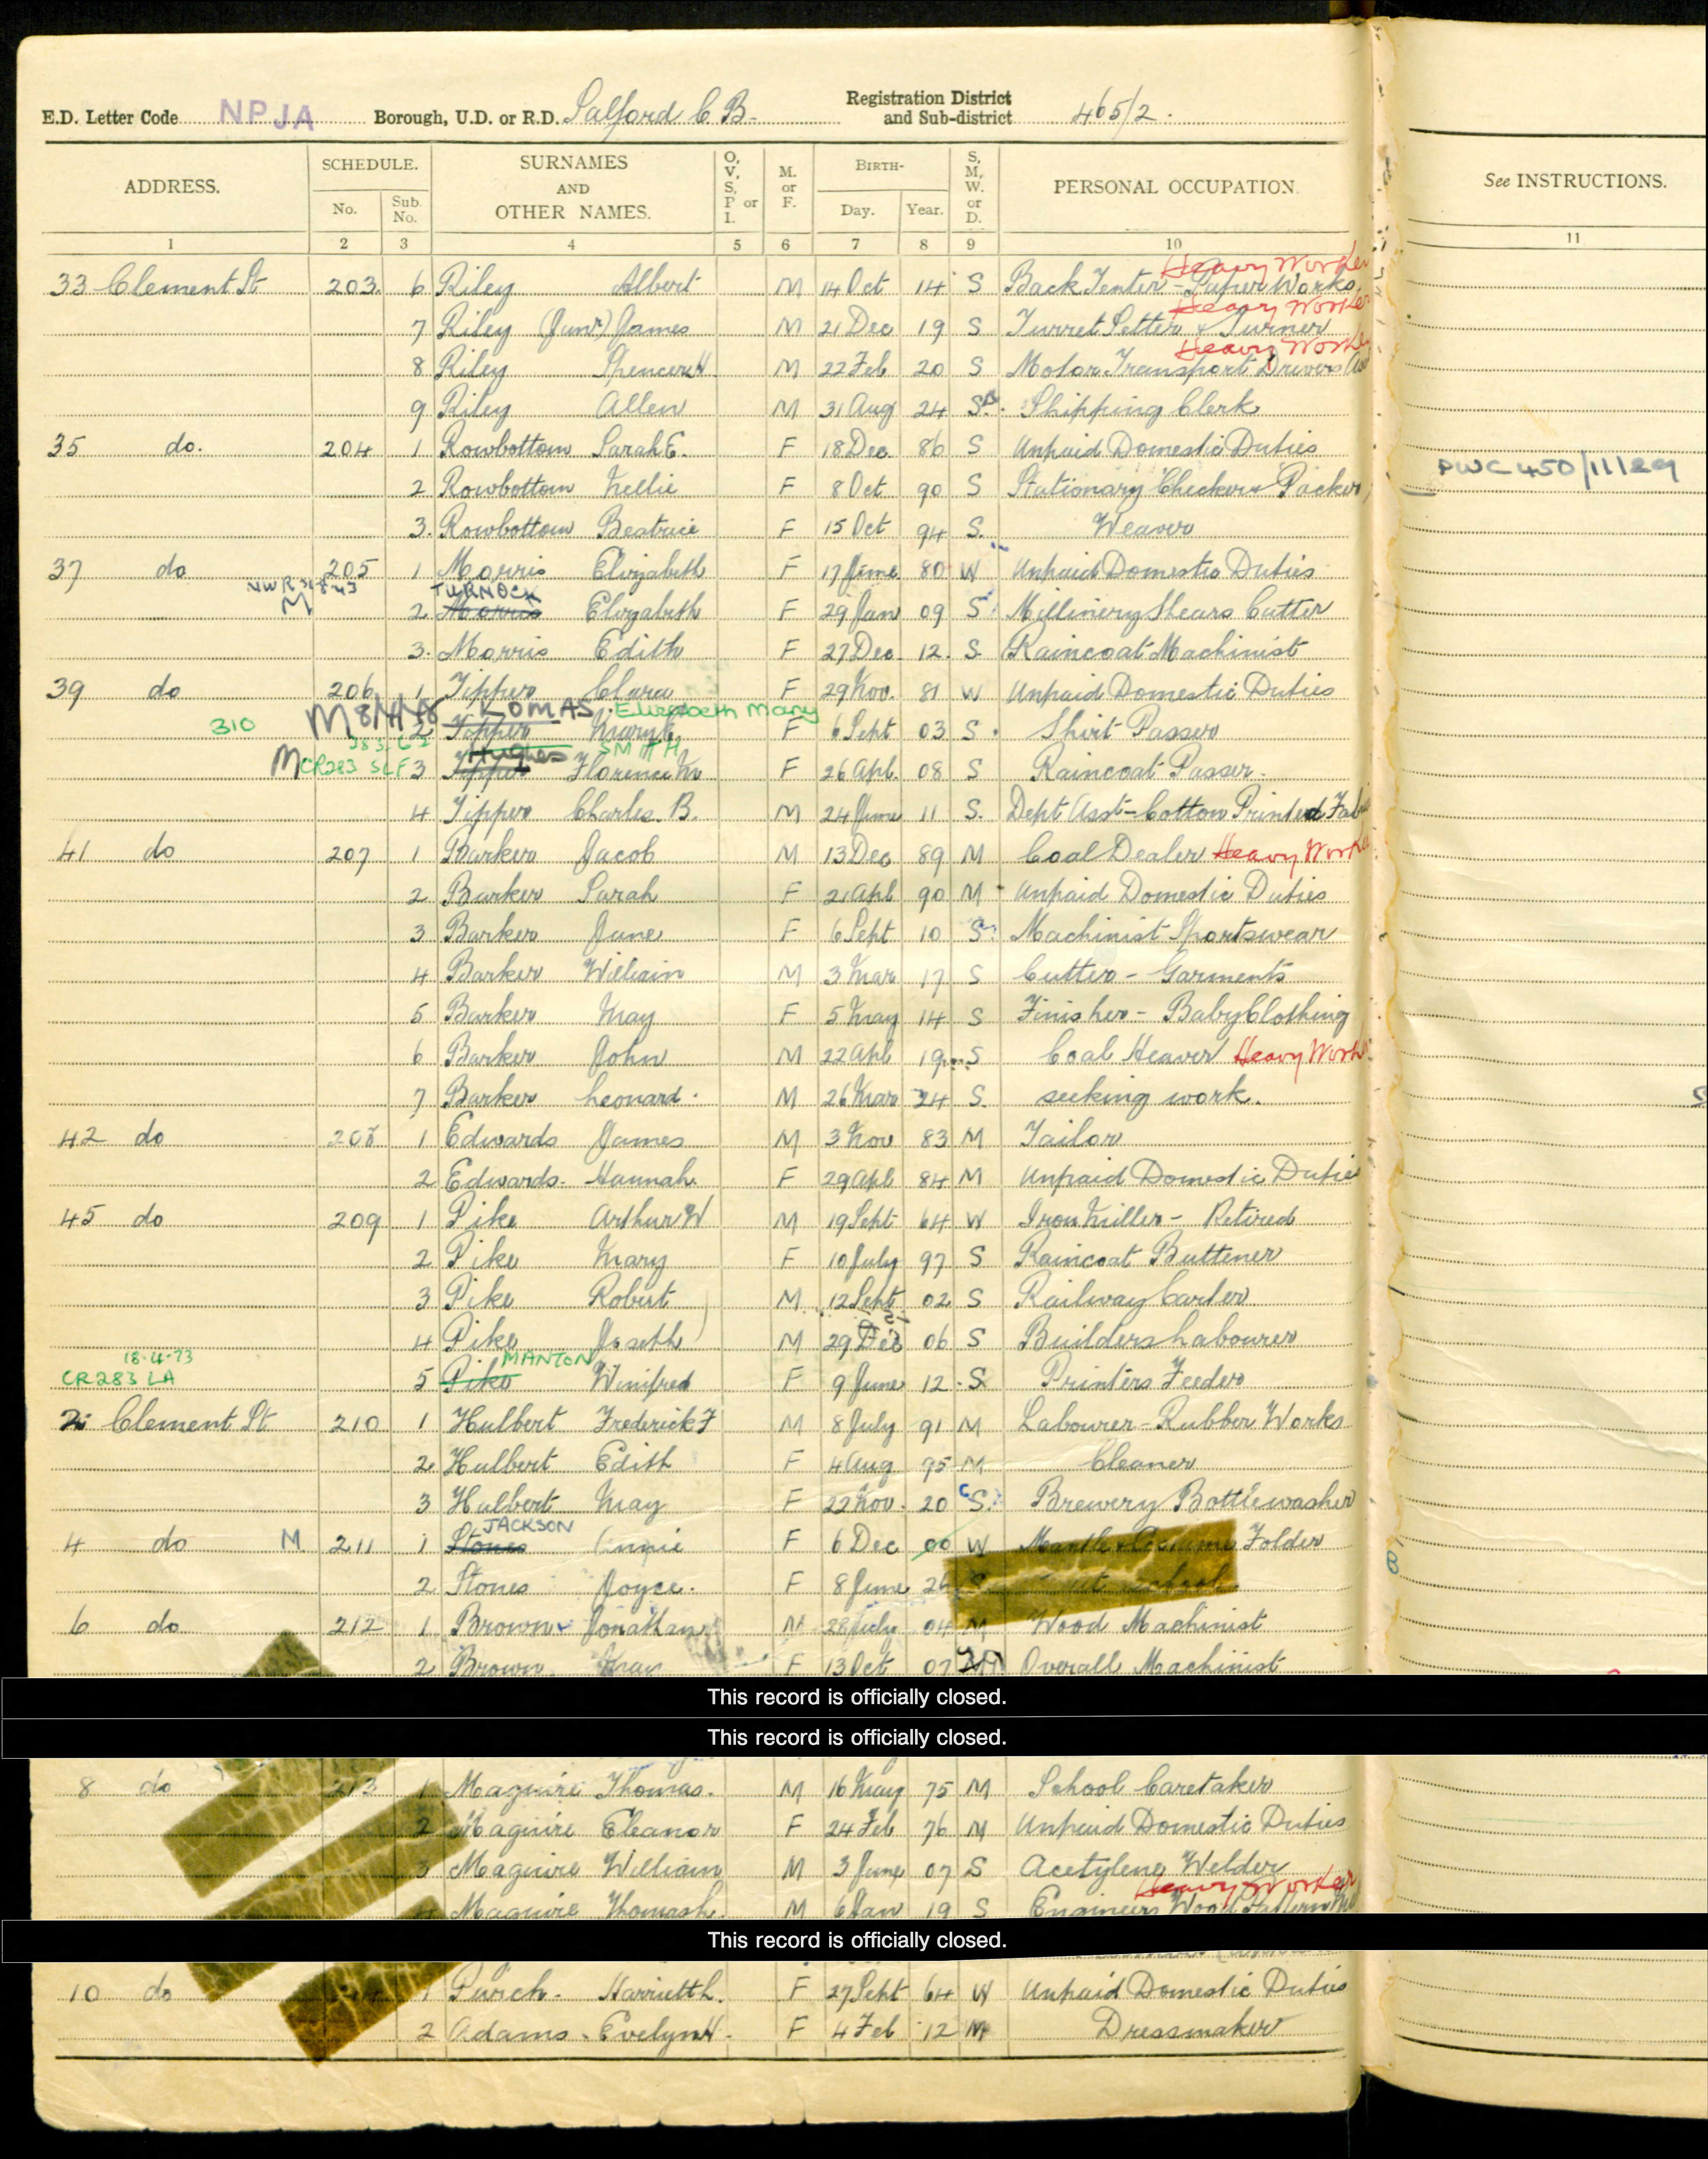 E.D. Letter Code NPJA Borough, U.D. or R.D. Salford C.B. Registration District and Sub-district 465/2.
ADDRESS. SCHEDULE. No. Sub. No. SURNAMES AND OTHER NAMES. O, V, S, P or I. M. or F. BIRTH- Day. Year. S, M, W. or D. PERSONAL OCCUPATION. See INSTRUCTIONS.
1 2 3 4 5 6 7 8 9 10 11
Heavy Worker
33 Clement St 203. 6 Riley Albert M 14 Oct 14 S Back Tenter - Paper Works
Heavy Worker
7 Riley (Junr) James M 21 Dec 19 S Turret Setter & Turner
Heavy Worker
8 Riley Spencer H M 22 Feb 20 S Motor Transport Drivers
9 Riley Allen M 31 Aug 24 S. Shipping Clerk
35 do. 204 1 Rowbottom Sarah E. F 18 Dec 86 S Unpaid Domestic Duties
PWC 450/11/29
2 Rowbottom Nellie F 8 Oct 90 S Stationary Checker & Packer
3. Rowbottom Beatrice F 15 Oct 94 S. Weaver
37 do 205 1 Morris Elizabeth F 17 June 80 W Unpaid Domestic Duties
NWR M TURNOCK
2 Morris Elizabeth F 29 Jan 09 S Millinery Shears Cutter
3. Morris Edith F 27 Dec 12. S. Raincoat Machinist
39 do 206 1 Tipper Clara F 29 Nov. 81 W Unpaid Domestic Duties
310 M LOMAS. Elizabeth Mary
2 Tipper Mary E F 6 Sept 03 S Shirt Passer
Hughes SMITH
M CR283 SLF 3 Tipper Florence M F 26 Apl. 08 S Raincoat Passer.
4 Tipper Charles. B. M 24 June 11 S. Dept Asst - Cotton Printed
41 do 207 1 Barker Jacob M 13 Dec 89 M Coal Dealer Heavy Worker
2 Barker Sarah F 21 Apl 90 M Unpaid Domestic Duties
3 Barker June F 6 Sept 10 S Machinist Sportswear
4 Barker William M 3 Mar 17 S Cutter - Garments
5 Barker May F 5 May 14 S Finisher - Baby Clothing
6 Barker John M 22 Apl 19 S Coal Heaver Heavy Work
7 Barker Leonard. M 26 Mar 24 S. seeking work.
42 do 208 1 Edwards James M 3 Nov 83 M Tailor
2 Edwards. Hannah F 29 Apl 84 M Unpaid Domestic Duties
45 do 209 1 Pike Arthur W M 19 Sept 64 W Iron Miller - Retired
2 Pike Mary F 10 July 97 S Raincoat Buttener
3 Pike Robert M 12 Sept 02 S Railway Carter
4 Pike Joseph M 29 Dec 06 S Builders Labourer
18-4-73 MANTON
CR283 LA 5 Pike Winifred F 9 June 12 S Printers Feeder
2 Clement St 210 1 Hulbert Frederick F M 8 July 91 M Labourer - Rubber Works
2 Hulbert Edith F 4 Aug 95 M Cleaner
3 Hulbert May F 22 Nov. 20 S Brewery Bottlewasher
JACKSON
4 do M 211 1 Stones Annie F 6 Dec 00 W Mantle & Costume Folder
B
2 Stones Joyce. F 8 June 26 S at school.
6 do 212 1 Brown Jonathan M 28 July 04 M Wood Machinist
2 Brown May F 13 Oct 07 M Overall Machinist
This record is officially closed.
This record is officially closed.
8 do 213 1 Maguire Thomas. M 16 May 75 M School Caretaker
2 Maguire Eleanor F 24 Feb 76 M Unpaid Domestic Duties
3 Maguire William M 3 June 07 S Acetylene Welder
Heavy Worker
Maguire Thomas M 6 Jan 19 S Engineers Wood Pattern
This record is officially closed.
10 do 1 Harriett L. F 27 Sept 64 W Unpaid Domestic Duties
2 Adams. Evelyn H. F 4 Feb 12 M Dressmaker